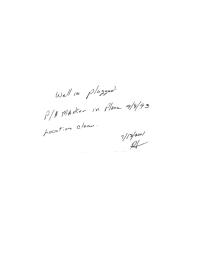 Well is plugged
P/A Marker in Place 9/9/93
Location clear.
7/17/2001